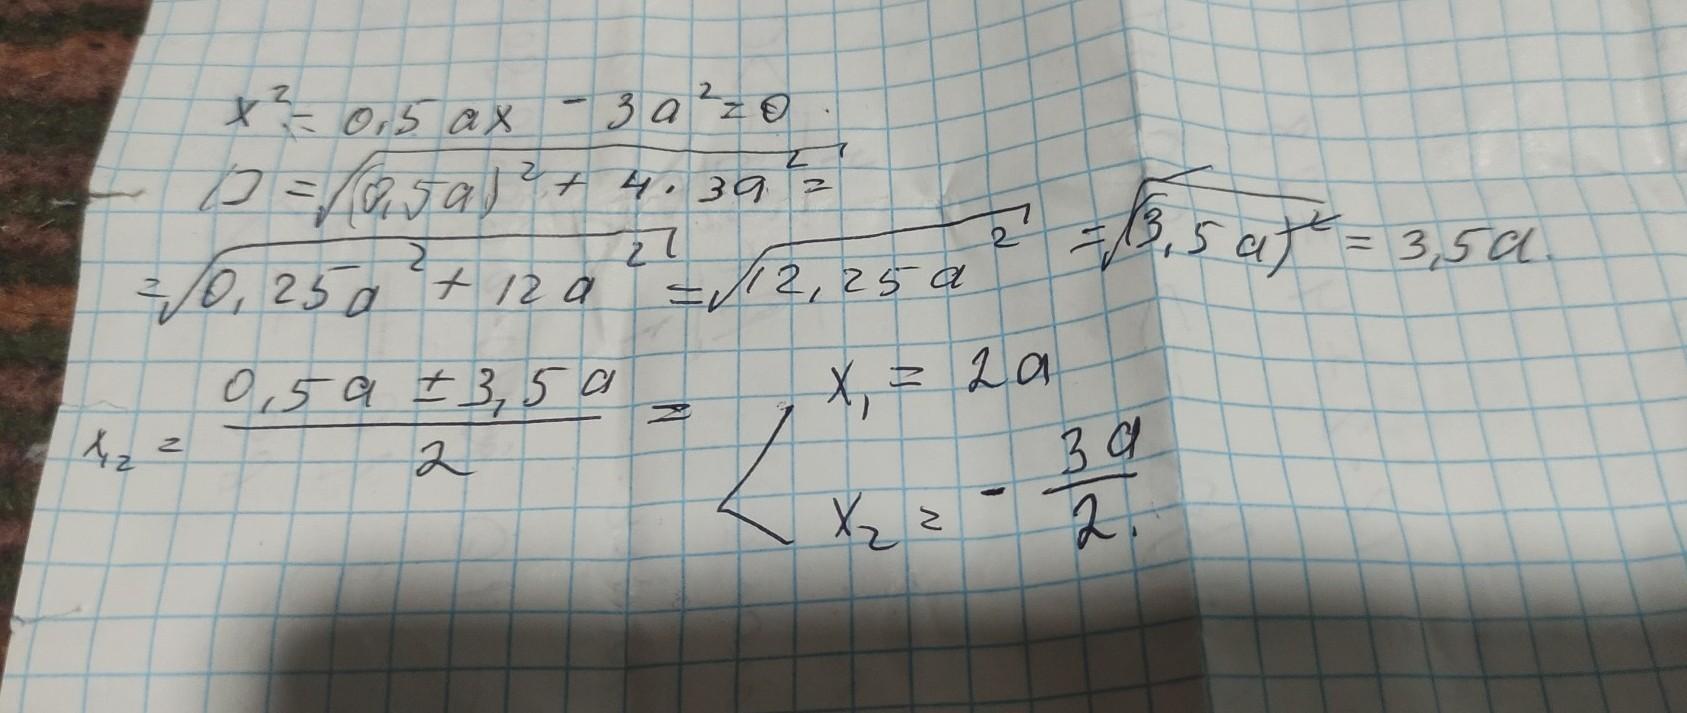 x² = 0,5ax - 3a² = 0
D = √((0,5a)² + 4 · 3a²) =
= √(0,25a² + 12a²) = √(12,25a²) = √((3,5a)²) = 3,5a.
x₁₂ = (0,5a ± 3,5a)/2 = < x₁ = 2a
x₂ = - 3a/2.